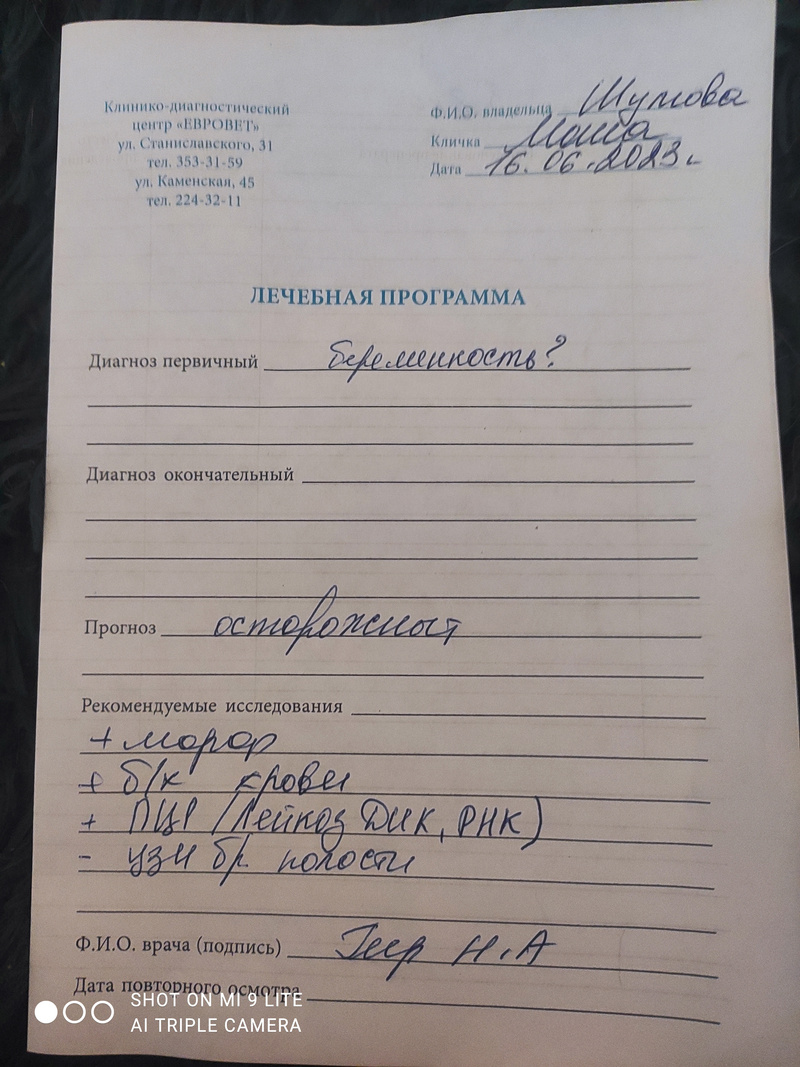 Клинико-диагностический
центр «ЕВРОВЕТ»
ул. Станиславского, 31
тел. 353-31-59
ул. Каменская, 45
тел. 224-32-11
Ф.И.О. владельца Шумова
Кличка Маша
Дата 16.06.2023г
ЛЕЧЕБНАЯ ПРОГРАММА
Диагноз первичный беременность?
Диагноз окончательный
Прогноз осторожный
Рекомендуемые исследования
+ морф
+ б/х крови
+ ПЦР (Лейкоз ДНК, РНК)
- узи бр. полости
Ф.И.О. врача (подпись) Н.А
Дата повторного осмотра
SHOT ON MI 9 LITE
AI TRIPLE CAMERA